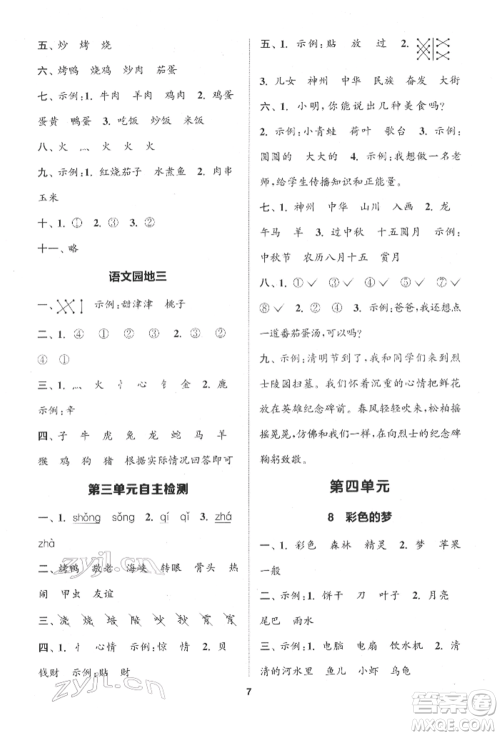 五、炒 烤 烧
六、烤鸭 烧鸡 炸肉 茄蛋
七、示例:1.牛肉 羊肉 鸡肉 2.鸡蛋
蛋黄 鸭蛋 3.吃饭 炒饭 米饭
八、灬 火 灬 火 火
九、示例:1.红烧茄子 水煮鱼 2.肉串
玉米
十、1.② ④ ③ ① 2.②
十一、略
语文园地三
一、 示例:甜津津 桃子
二、1.④ ① ③ ② 2.④ ② ③ ①
④ ①
三、1.灬 火 忄 心 忄 忄 2.鹿
3.示例:辛
四、子 牛 虎 兔 龙 蛇 马 羊
猴 鸡 狗 猪 示例:按实际情况回答即可
第三单元自主检测
一、1.shōng sǒng 2.qí qǐ 3.zhá
zhà
二、烤鸭 敬老 海峡 转眼 骨头 热
闹 甲虫 友谊
三、浇 烧 培 陪 彭 吹 宵 霄
四、1.忄 心 情 示例:心情 2.贝
钱财 示例:贴 财
五、1.示例:贴 放 过 2.
3.儿女 神州 中华 民族 奋发 大街
六、1.小明,你家乡有哪些美食呢?
2.示例:小青蛙 荷叶 歌台 3.示例:
圆圆的 大大的 4.示例:我想做一名老
师,给学生传播知识和正能量。
七、1.神州 中华 山川 入画 2.龙
午马 羊 3.过中秋节 十五圆月 4.示例:
中秋节 农历八月十五 赏月
八、1.① ✓ ③ ✓ ⑤ ✓ ⑦ ✓
⑧ ✓ 2.④ ② ① ③ 3.示例:爸爸,我还想点
一道番茄蛋汤,可以吗?
九、示例:清明节到了,我和同学们去烈
士陵园扫墓。我们怀着沉重的心情把鲜花
放在英雄纪念碑前。春风轻轻吹来,松柏摇
摇晃晃,仿佛和我们一起向烈士的纪念碑
鞠躬致敬。
第四单元
8 彩色的梦
一、1.彩色 森林 精灵 2.梦 苹果
般 一般
二、示例:1.饼干 刀 叶子 2.月亮
尾巴 雨水
三、示例:1.电脑 电扇 饮水机 2.清
清的河水里 鱼儿 小虾 乌龟
7
zyjl.cn
zyjl.cn